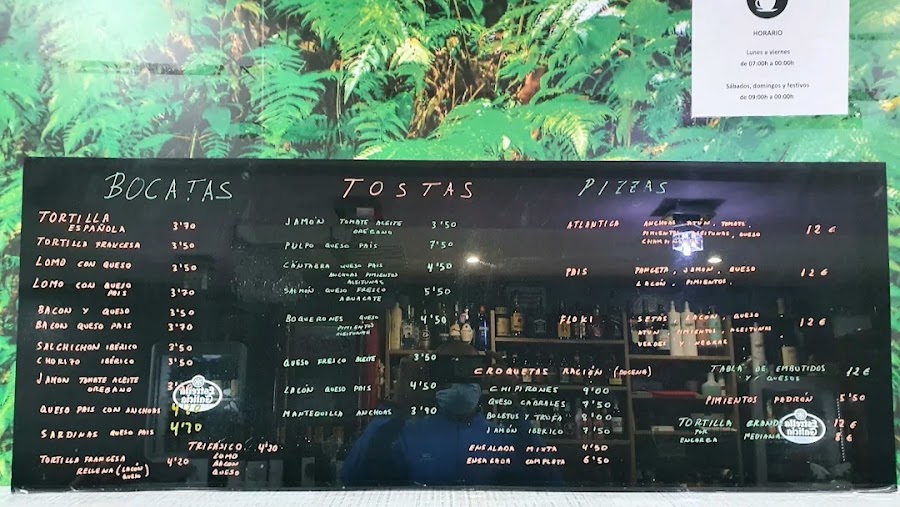 HORARIO
Lunes a viernes
de 07:00h a 00:00h
Sábados, domingos y festivos
de 09:00h a 00:00h
BOCATAS
TORTILLA
ESPAÑOLA 3'70
TORTILLA FRANCESA 3'50
LOMO CON QUESO 3'50
LOMO CON QUESO
PAIS 3'70
BACON Y QUESO 3'50
BACON QUESO PAIS 3'70
SALCHICHON IBÉRICO 3'50
CHORIZO IBÉRICO 3'50
JAMON TOMATE ACEITE
OREGANO
QUESO PAIS CON ANCHOAS
SARDINAS QUESO PAIS 4'70
TRIFÁSICO 4'30
LOMO
BACON
QUESO
TORTILLA FRANCESA 4'20
RELLENA (LACÓN
QUESO)
TOSTAS
JAMÓN TOMATE ACEITE 3'50
OREGANO
PULPO QUESO PAÍS 7'50
CÁNTABRA QUESO PAIS 4'50
ANCHOAS PIMIENTOS
ACEITUNAS
SALMÓN QUESO FRESCO 5'50
AGUACATE
BOQUERONES QUESO 4'50
PIMIENTOS
ACEITUNAS
QUESO FRESCO ACEITE 3'50
LACÓN QUESO PAIS 4'50
MANTEQUILLA ANCHOAS 3'90
CROQUETAS RACIÓN (DOCENA)
CHIPIRONES 9'00
QUESO CABRALES 7'50
BOLETUS Y TRUFA 8'00
JAMÓN IBÉRICO 7'50
ENSALADA MIXTA 4'50
ENSALADA COMPLETA 6'50
PIZZAS
ATLANTICA ANCHOAS ATÚN. TOMATE 12 €
PIMIENTOS ACEITUNAS, QUESO
PAIS PANCETA. JAMON. QUESO 12 €
LACÓN. PIMIENTOS.
FLOKI SETAS LACÓN. QUESO 12 €
ATÚN PIMIENTOS. ACEITUNAS
VERDES Y NEGRAS
TABLA DE EMBUTIDOS 12 €
Y QUESOS
PIMIENTOS PADRÓN 5'50
TORTILLA 12 €
POR MEDIANA 8 €
ENCARGO
Estrella
Galicia
Estrella
Galicia